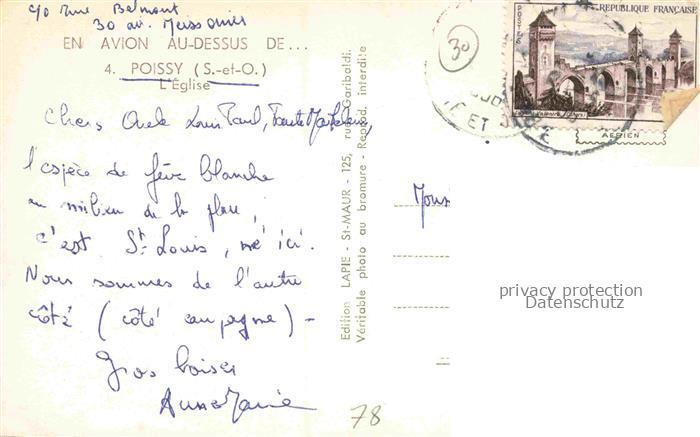 c/o Rue Belmont
30 av. Meissonier
EN AVION AU-DESSUS DE...
4. POISSY (S.-et-O.)
L'Eglise
Chers Oncle Louis Paul, Tante
l'espèce de fève blanche
au milieu de la place,
c'est St Louis, né ici.
Nous sommes de l'autre
côté (côté campagne) -
Gros baisers
Anne Marie
78
Edition LAPIE - St-MAUR - 125, rue Garibaldi.
Véritable photo au bromure - Reprod. interdite
30
REPUBLIQUE FRANÇAISE
ET
AERIEN
privacy protection
Datenschutz